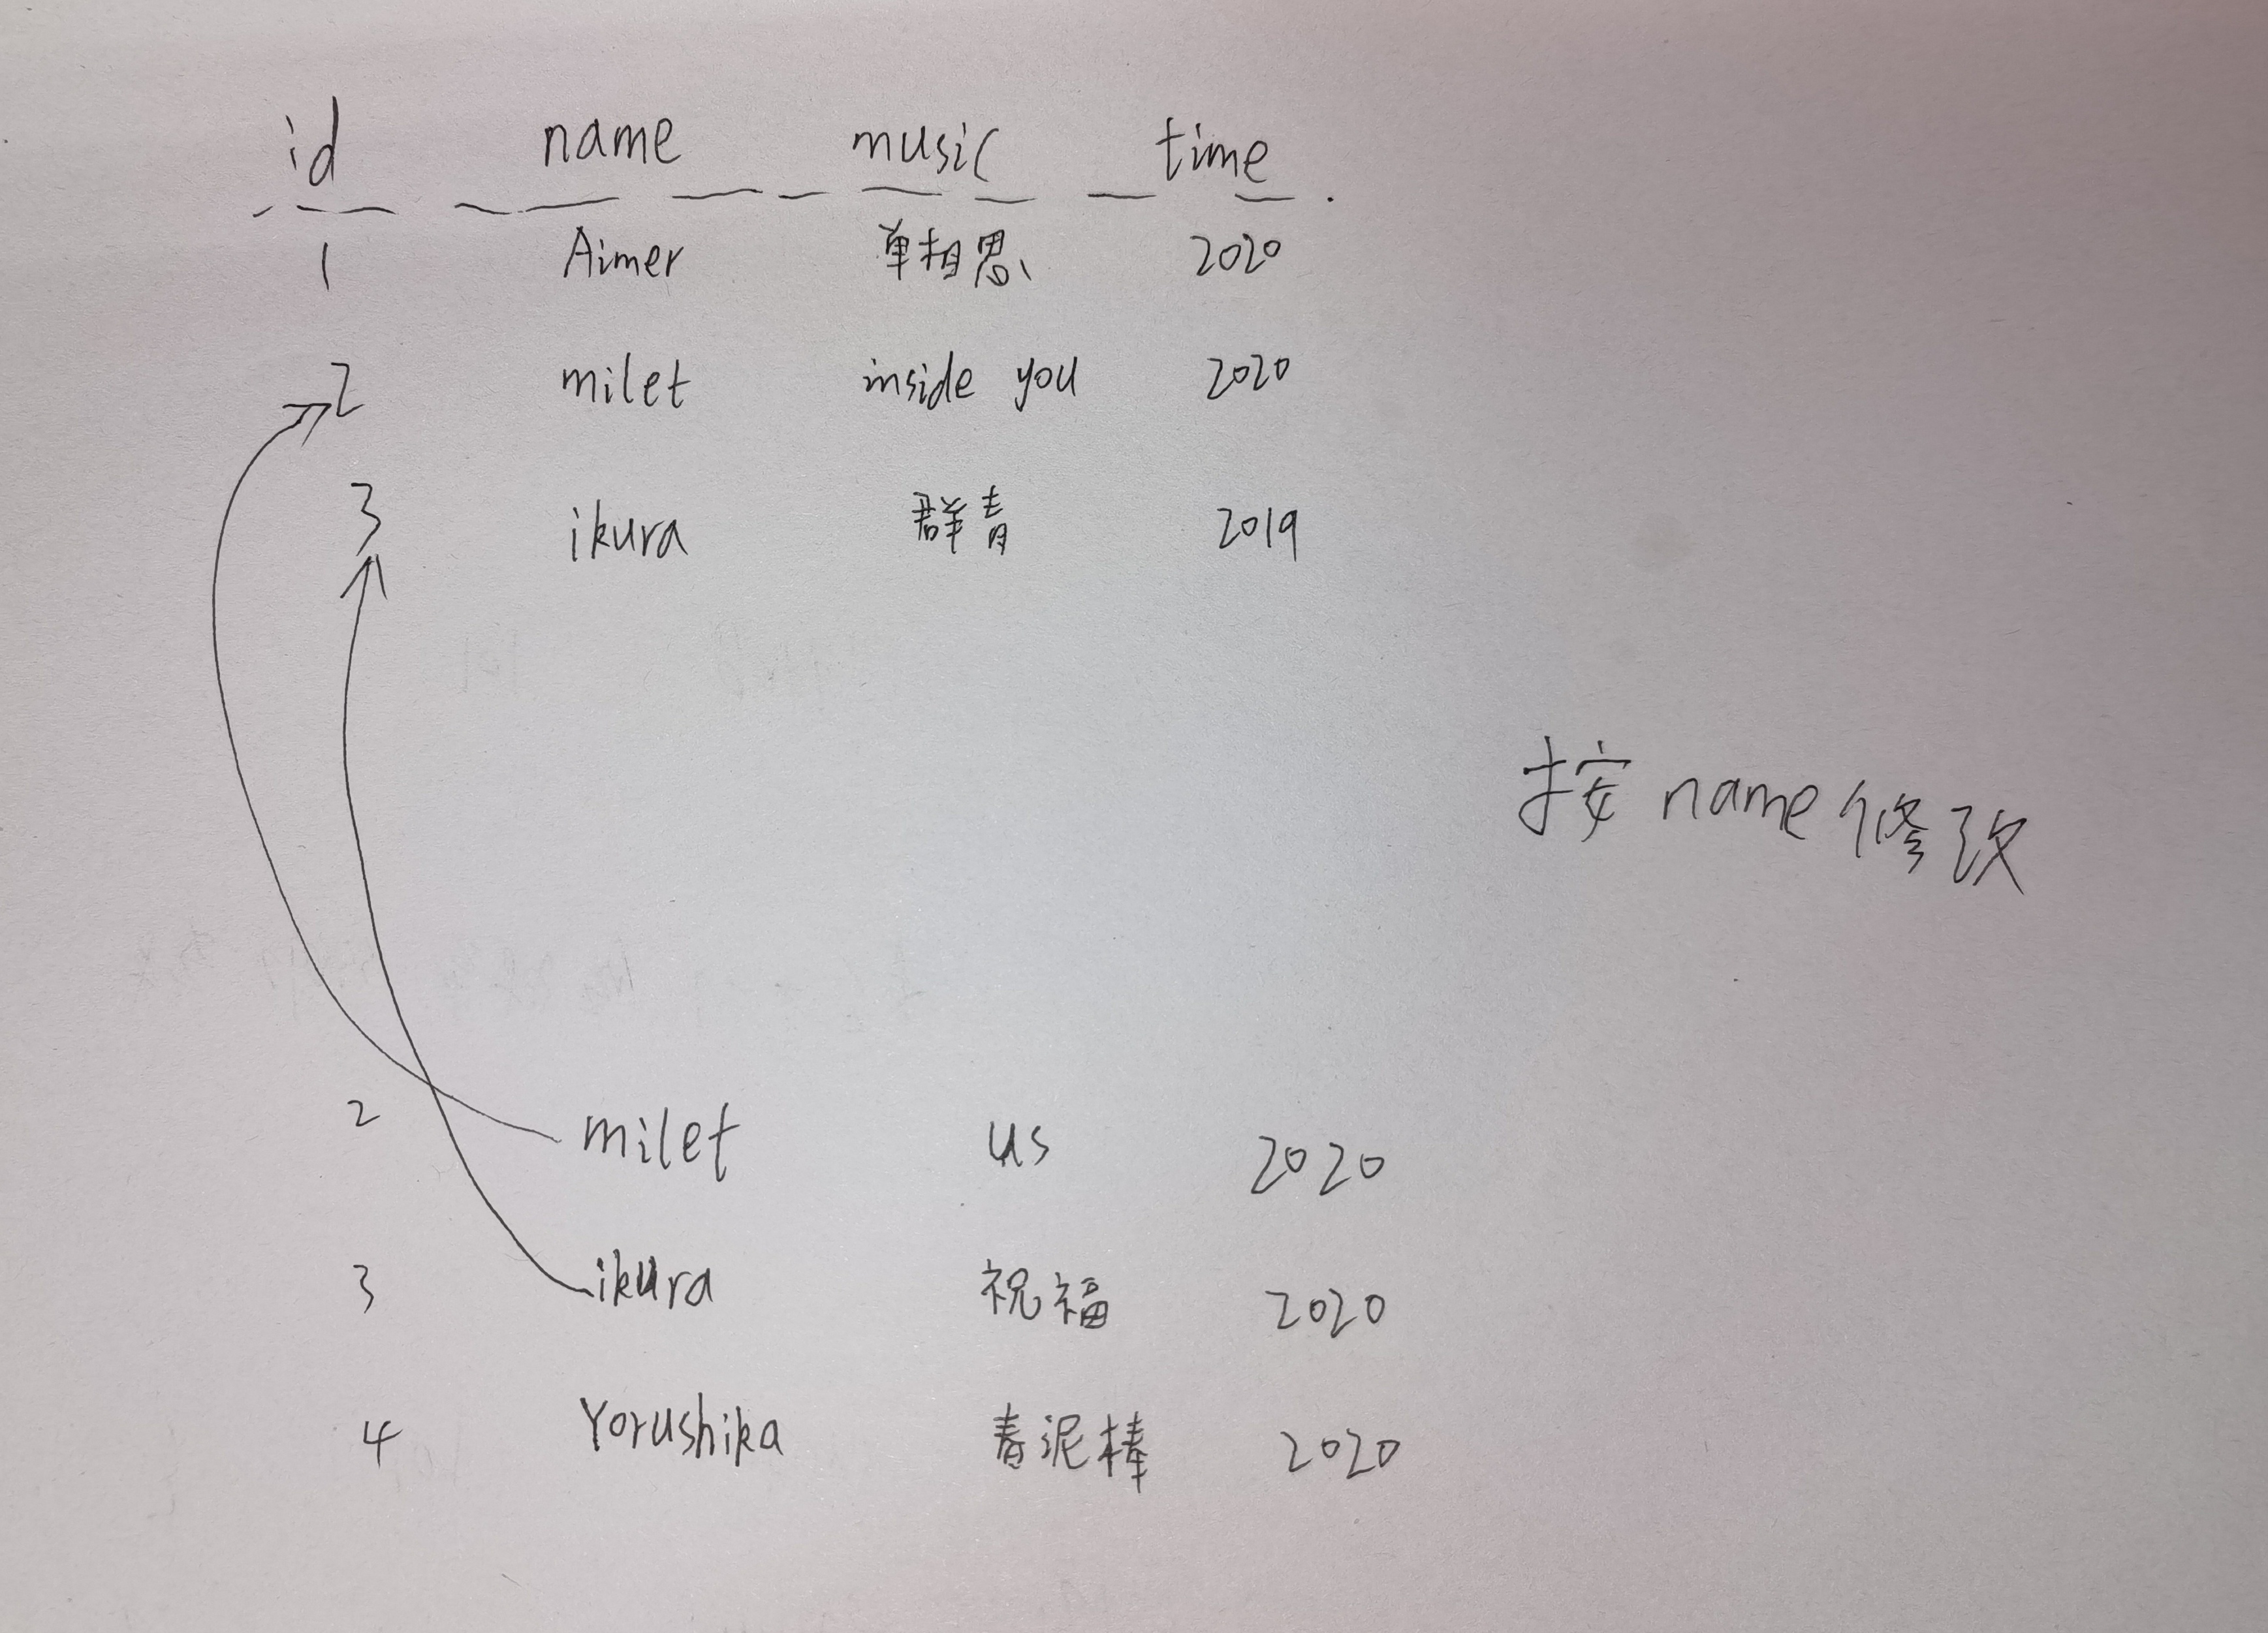 id name music time
1 Aimer 单相思 2020
2 milet inside you 2020
3 ikura 群青 2019
按name修改
2 milet us 2020
3 ikura 祝福 2020
4 Yorushika 春泥棒 2020